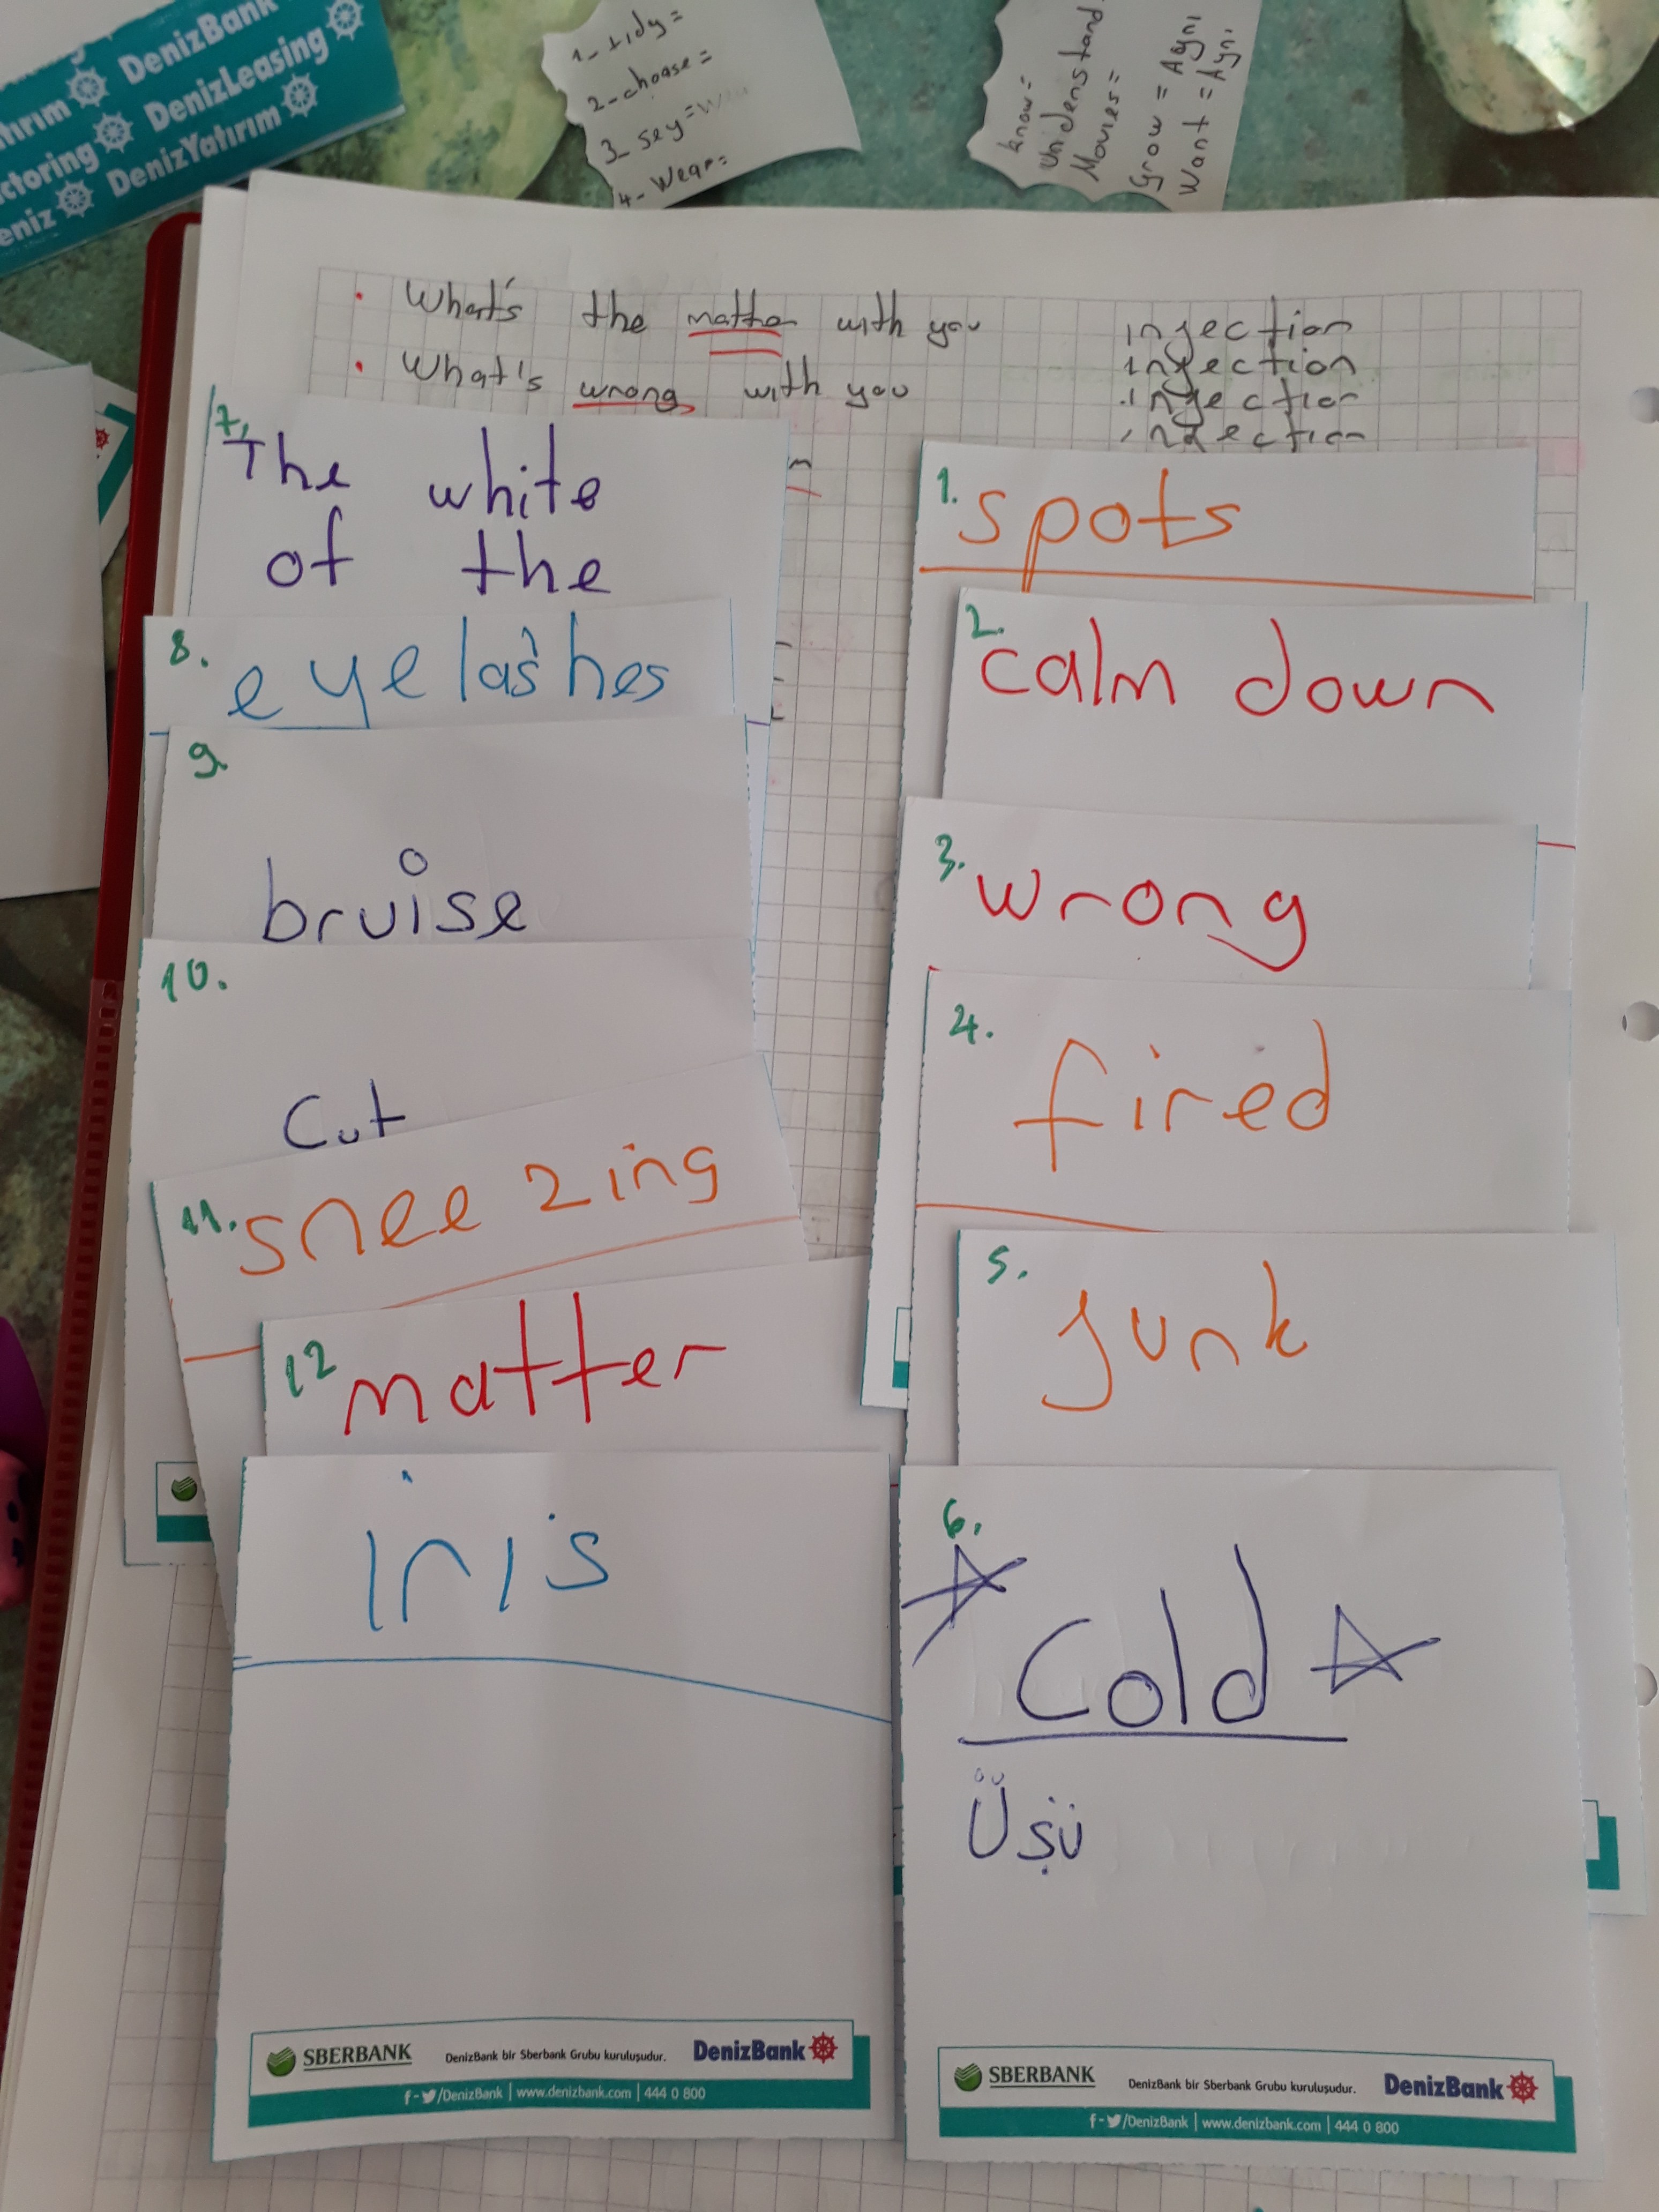 DenizBank
DenizLeasing
DenizYatırım
1- tidy=
2- choose=
3- sey=
4- Wear=
know=
undenstand
Movies=
Grow = Aynı
Want = Aynı
• What's the matter with you
• What's wrong with you
injection
injection
injection
injection
7.
The white
of the
8. eyelashes
9.
bruise
10.
Cut
11. sneezing
12 matter
iris
1. spots
2. calm down
3. wrong
4. fired
5. junk
6.
Cold
Üşü
SBERBANK DenizBank bir Sberbank Grubu kuruluşudur. DenizBank
f - /DenizBank | www.denizbank.com | 444 0 800
SBERBANK DenizBank bir Sberbank Grubu kuruluşudur. DenizBank
f - /DenizBank | www.denizbank.com | 444 0 800